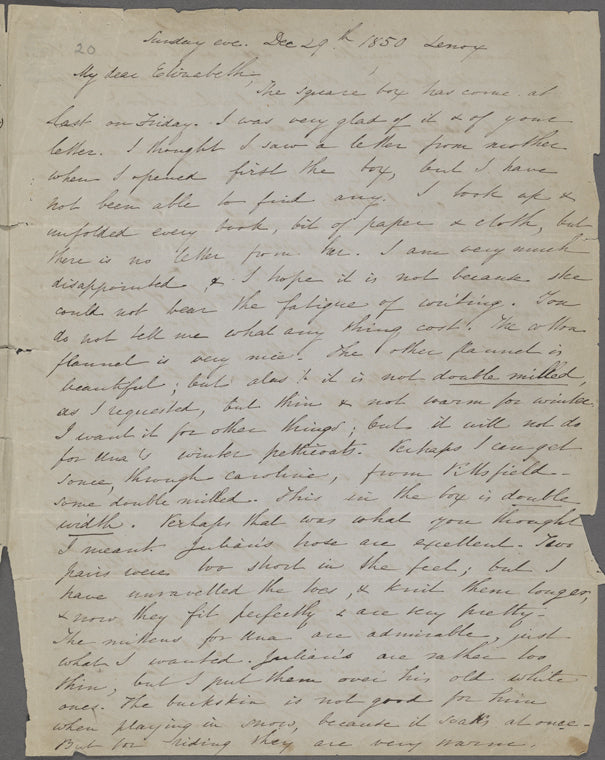 20
Sunday eve. Dec 29th 1850 Lenox
My dear Elizabeth,
The square box has come at
last on Friday. I was very glad of it & of your
letter. I thought I saw a letter from mother
when I opened first the box, but I have
not been able to find any. I took up &
unfolded every book, bit of paper & cloth, but
there is no letter from her. I am very much
disappointed, & I hope it is not because she
could not bear the fatigue of writing. You
do not tell me what any thing cost. The cotton
flannel is very nice. The other flannel is
beautiful; but alas! it is not double milled,
as I requested, but thin & not warm for winter.
I want it for other things; but it will not do
for Una's winter petticoats. Perhaps I can get
some, through Caroline, from Pittsfield —
some double milled. This in the box is double
width. Perhaps that was what you thought
I meant. Julian's hose are excellent. Two
pairs were too short in the feet; but I
have unravelled the toes, & knit them longer,
& now they fit perfectly & are very pretty.
The mittens for Una are admirable, just
what I wanted. Julian's are rather too
thin, but I put them over his old white
ones. The buckskin is not good for him
when playing in snow, because it soaks at once —
But for riding they are very warm.